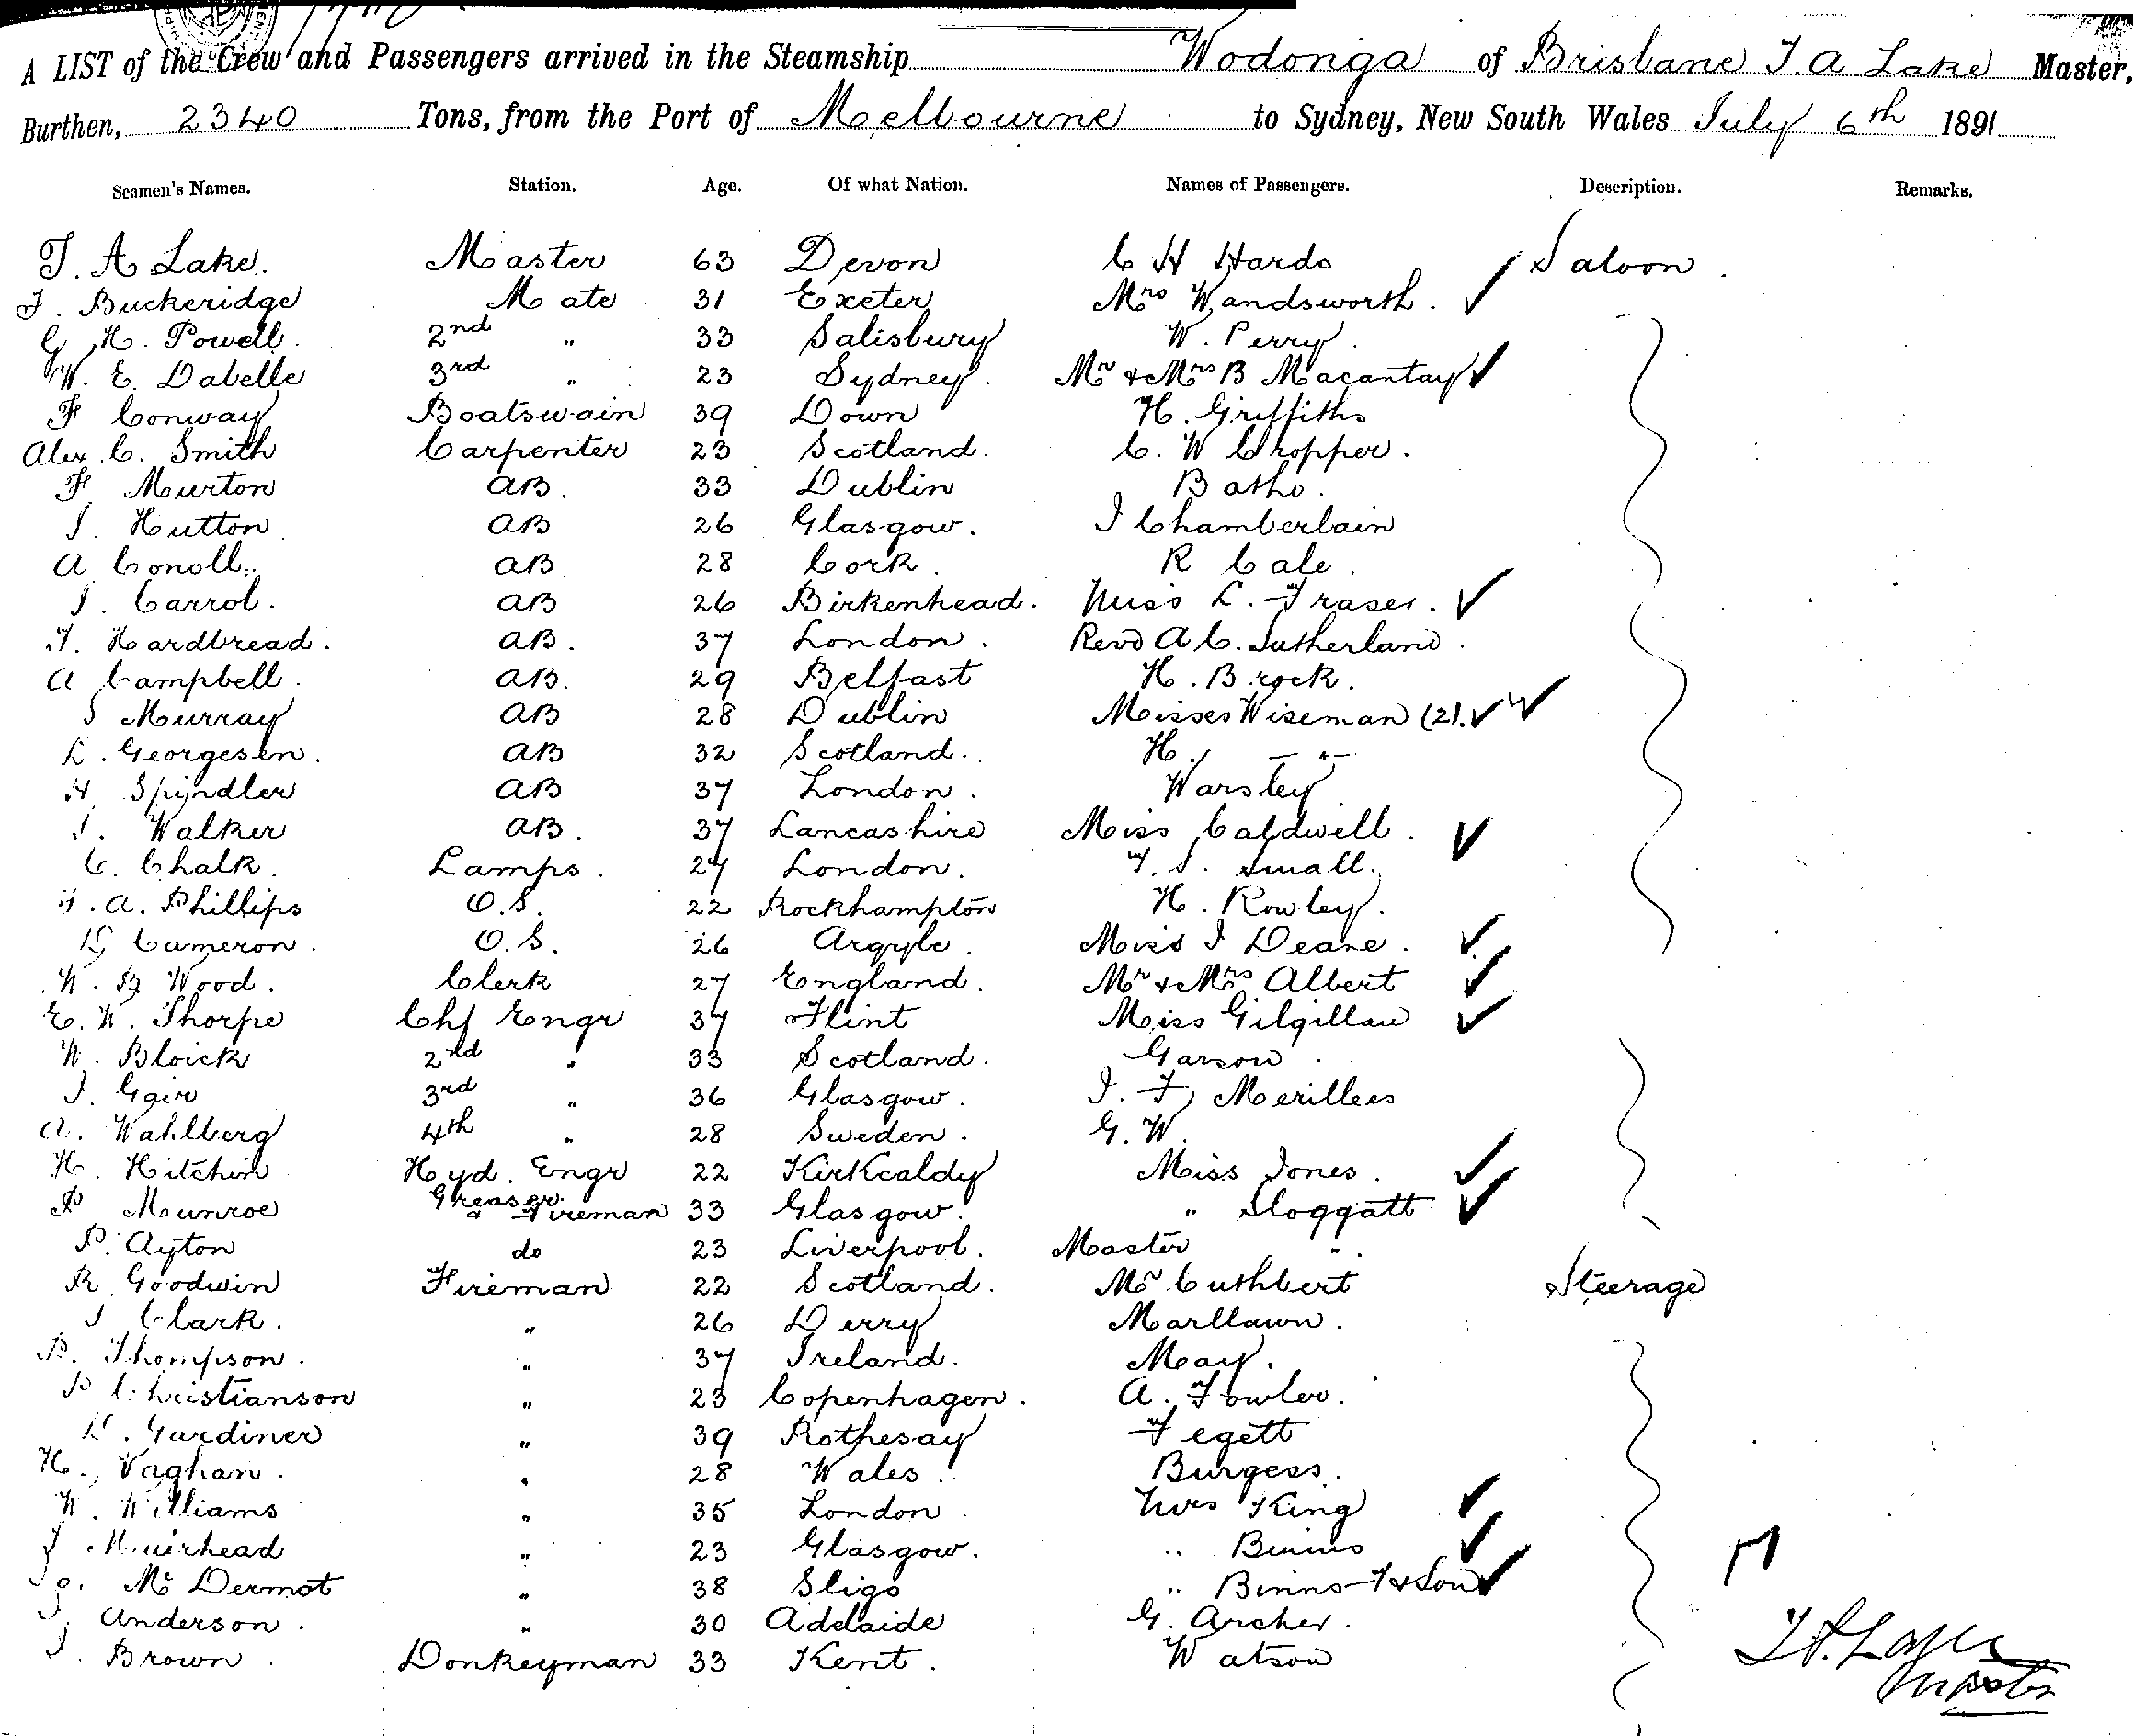 A LIST of the Crew and Passengers arrived in the Steamship Wodonga of Brisbane T. A. Lake Master,
Burthen, 2340 Tons, from the Port of Melbourne to Sydney, New South Wales July 6th 1891
Seamen's Names. Station. Age. Of what Nation. Names of Passengers. Description. Remarks.
T. A Lake. Master 63 Devon C H Hards Saloon.
F. Buckeridge Mate 31 Exeter Mrs Wandsworth.
G. H. Powell. 2nd " 33 Salisbury W. Perry.
W. E. Dabelle 3rd " 23 Sydney. Mr & Mrs B Macantay
F Conway Boatswain 39 Down H. Griffiths
Alex. C. Smith Carpenter 23 Scotland. C. W Chropper.
F Murton AB. 33 Dublin Batho.
J. Hutton AB 26 Glasgow. J Chamberlain
A Conoll.. AB. 28 Cork. R Cale.
J. Carrol. AB 26 Birkenhead. Miss L. Fraser.
T. Hardbread. AB. 37 London. Revd A C. Sutherland.
A Campbell. AB. 29 Belfast H. Brock.
J Murray AB 28 Dublin Misses Wiseman (2).
L. Georgesen. AB 32 Scotland. H. "
H Spindler AB 37 London. Warsley
J. Walker AB. 37 Lancashire Miss Caldwell.
C. Chalk. Lamps. 27 London. T. S. Small.
F. A. Phillips O.S. 22 Rockhampton H. Rowley.
D Cameron. O.S. 26 Argyle. Miss J Deane.
W. B Wood. Clerk 27 England. Mr & Mrs Albert
E. W. Thorpe Chf Engr 37 Flint Miss Gilgillan
W. Bloick 2nd " 33 Scotland. Garson.
J. Gair 3rd " 36 Glasgow. J. F. Merillees
A. Wahlberg 4th " 28 Sweden. G. W.
H. Hitchin Hyd. Engr 22 Kirkcaldy Miss Jones.
P Munroe Greaser & Fireman 33 Glasgow. " Sloggatt
P. Ayton do 23 Liverpool. Master "
R Goodwin Fireman 22 Scotland. Mr Cuthbert Steerage
J Clark. " 26 Derry Marllawn.
P. Thompson. " 37 Ireland. May.
P Christianson " 23 Copenhagen. A. Fowler.
D. Gardiner " 39 Rothesay Fegett
H. Vaghan. " 28 Wales. Burgess.
W. Williams " 35 London. Mrs King
J Muirhead " 23 Glasgow. " Binns
Mc Dermot " 38 Sligo " Binns & Son
J. Anderson. " 30 Adelaide G. Archer.
J. Brown. Donkeyman 33 Kent. Watson
T A. Lake
Master